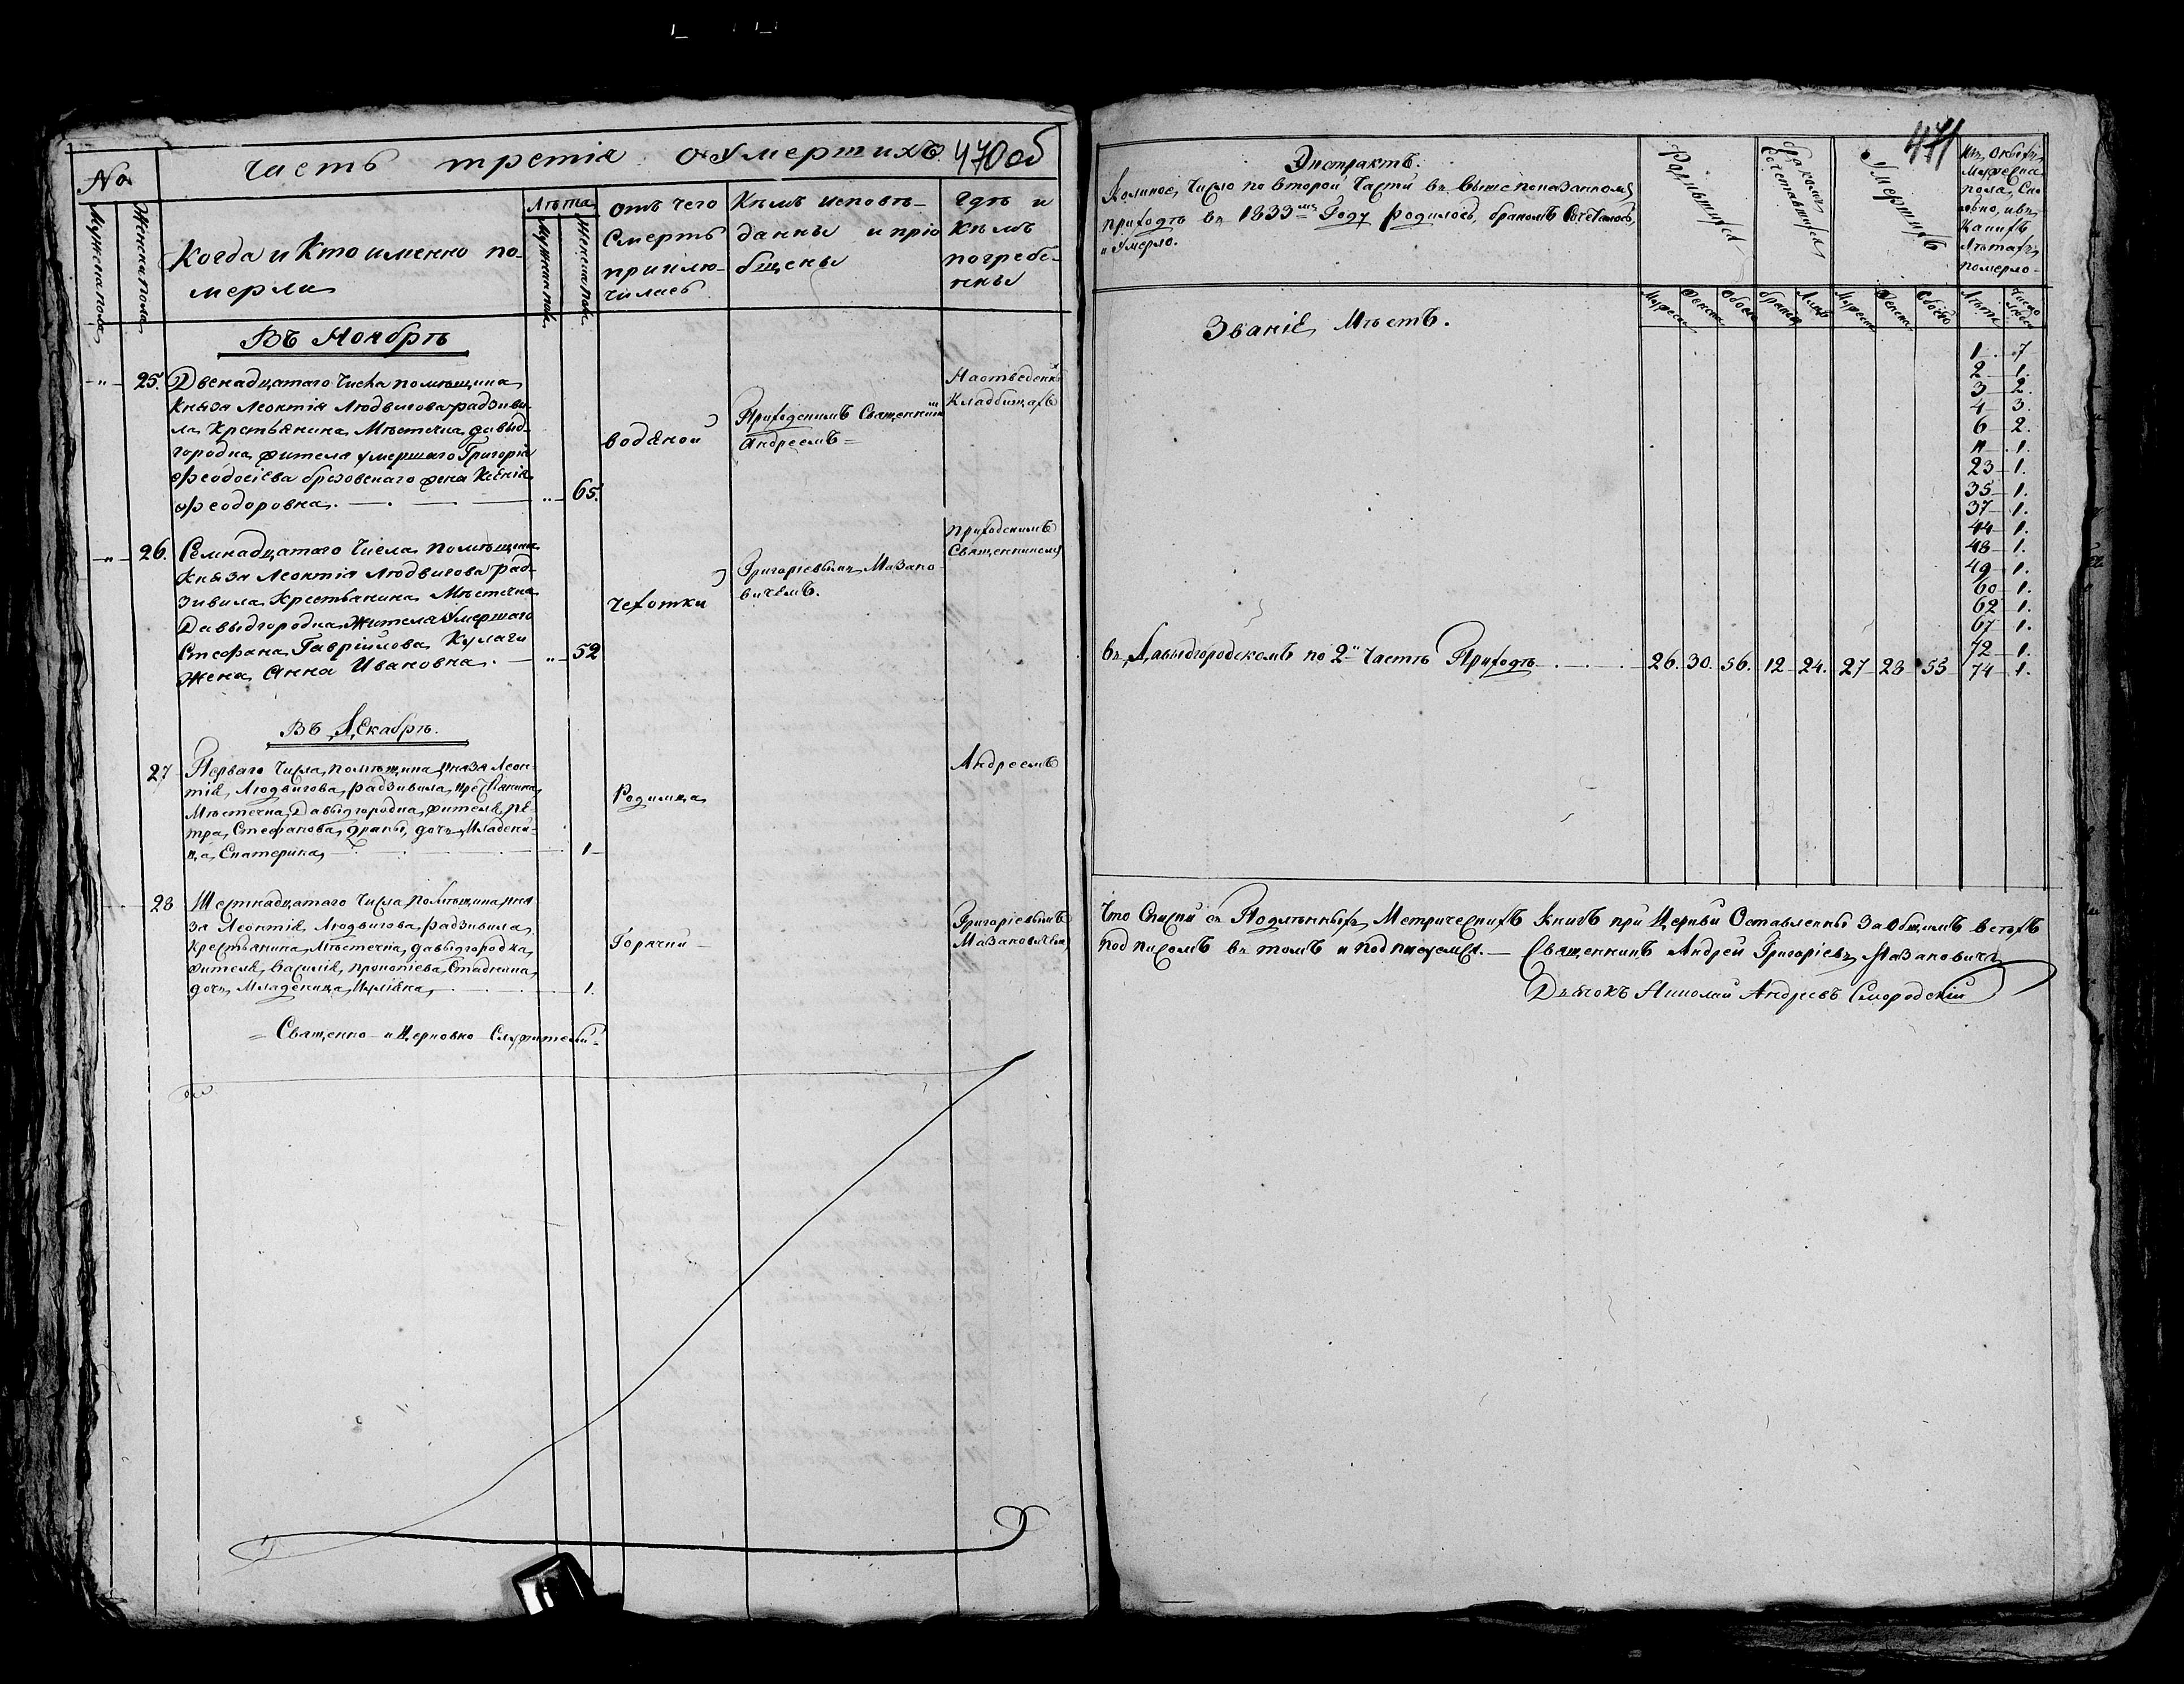 Часть третія о Умершихъ. 470об
No
Мужеска пола
Женска пола
Когда и Кто именно по-
мерли
Лѣта
Мужеска пола
Женска пола
Отъ чего
Смерть
приклю-
чилась
Кѣмъ исповѣ-
даны и прiо
бщены
Гдѣ и
Кѣмъ
погребе-
ны
Въ Ноябрѣ
25. Двенадцатаго Числа помѣщика
Князя Леонтія Людвигова радзиви-
ла Крестьянина Мѣстечка давыд-
городка жителя умершаго Григорія
Феодосіева брезовскаго жена Ксенія
Феодоровна. 65.
водяной
Приходскимъ Священникомъ
Андреемъ
На отведенныхъ
Кладбищахъ
26. Семнадцатаго Числа помѣщика
Князя Леонтія Людвигова рад-
зивила Крестьянина Мѣстечка
Давыдгородка Жителя Умершаго
Стефана Гавріилова Кулаги
Жена Анна Ивановна. 52
Чехотки
Григоріевымъ Мазано-
вичемъ.
приходскимъ
Священникомъ
Въ Декабрѣ.
27 Перваго Числа помѣщика Князя Леон-
тія Людвигова радзивила крестьянина
Мѣстечка Давыдгородка жителя Пе-
тра Стефанова дочь Младени-
ца Екатерина 1
Родимца
Андреемъ
28 Шестнадцатаго Числа помѣщика Кня
зя Леонтія Людвигова радзивила
Крестьянина Мѣстечка давыдгородка
жителя Василія прокопіева
дочь Младеница Иуліана 1.
Горячки
Григоріевымъ
Мазановичемъ
Священно- и Церковно Служителей
471
Экстрактъ.
Коликое Число по второй Части въ вышепоказанномъ
приходѣ въ 1833мъ Году родилось, бракомъ Сочеталось,
и Умерло.
Родившихся
бракомъ
Сочетавшихся
Умершихъ
Изъ оныхъ
Мужеска
пола, Ско
лько, и въ
Какихъ
Лѣтахъ
померло
Званіе Мѣстъ.
Мужеска
Женска
Обоего
браковъ
Лицъ
Мужеска
Женска
Обоего
Лѣта
Число
1 7
2 1.
3 2.
4 3.
6 2.
11 1.
23 1.
35 1.
37 1.
44 1.
48 1.
49 1.
60 1.
62 1.
67 1.
72 1.
74 1.
въ Давыдгородскомъ по 2й Части Приходѣ 26. 30. 56. 12 24. 27 28 55
Что Списки съ Подлѣнныхъ Метрическихъ Книгъ при Церкви Оставленны За Общимъ всехъ
подписомъ въ томъ и подписуемся. Священникъ Андрей Григоріевъ Мазановичъ
Дьячокъ Николай Андреевъ Смородскій